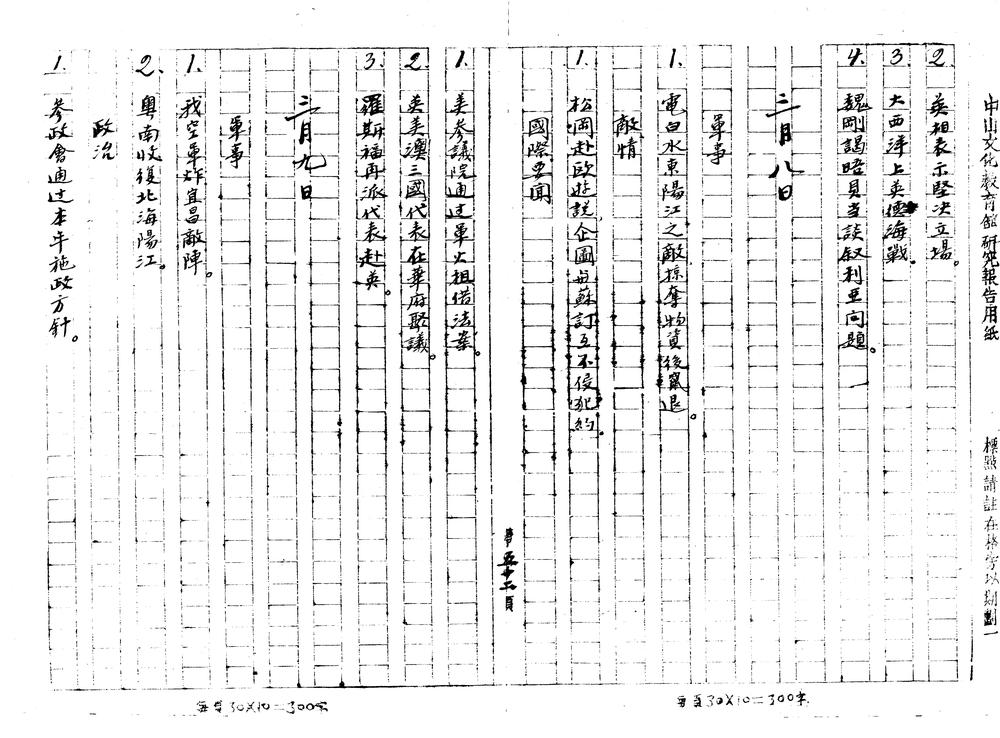 中山文化教育館研究報告用紙
標點請註在格旁以期劃一
2. 英相表示堅決立場。
3. 大西洋上英德海戰。
4. 魏剛謁晤貝當談叙利亜问題。
三月八日
軍事
1. 電白水東陽江之敵掠奪物資後竄退。
敵情
1. 松岡赴欧游説企圖与蘇訂互不侵犯約。
國際要聞
第五十二頁
1. 美参議院通过軍火租借法案。
2. 英美澳三國代表在華府聚議。
3. 羅斯福再派代表赴英。
三月九日
軍事
1. 我空軍炸宜昌敵陣。
2. 粤南收復北海陽江。
政治
1. 参政會通过本年施政方針。
每頁30X10=300字
每頁30X10=300字